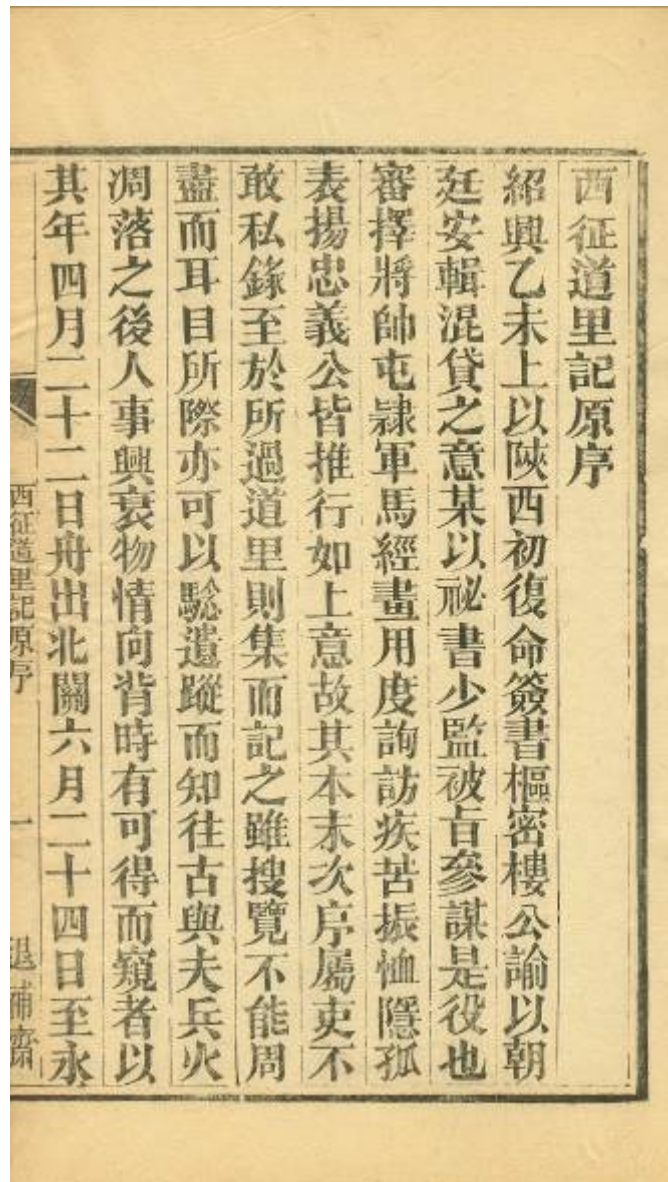 西征道里記原序
紹興乙未上以陝西初復命簽書樞密樓公諭以朝
廷安輯混貸之意某以祕書少監被旨參謀是役也
審擇將帥屯隷軍馬經畫用度詢訪疾苦振恤隱孤
表揚忠義公皆推行如上意故其本末次序屬吏不
敢私錄至於所過道里則集而記之雖搜覽不能周
盡而耳目所際亦可以驗遺蹤而知往古與夫兵火
凋落之後人事興衰物情向背時有可得而窺者以
其年四月二十二日舟出北關六月二十四日至永
西征道里記原序
一
退補齋